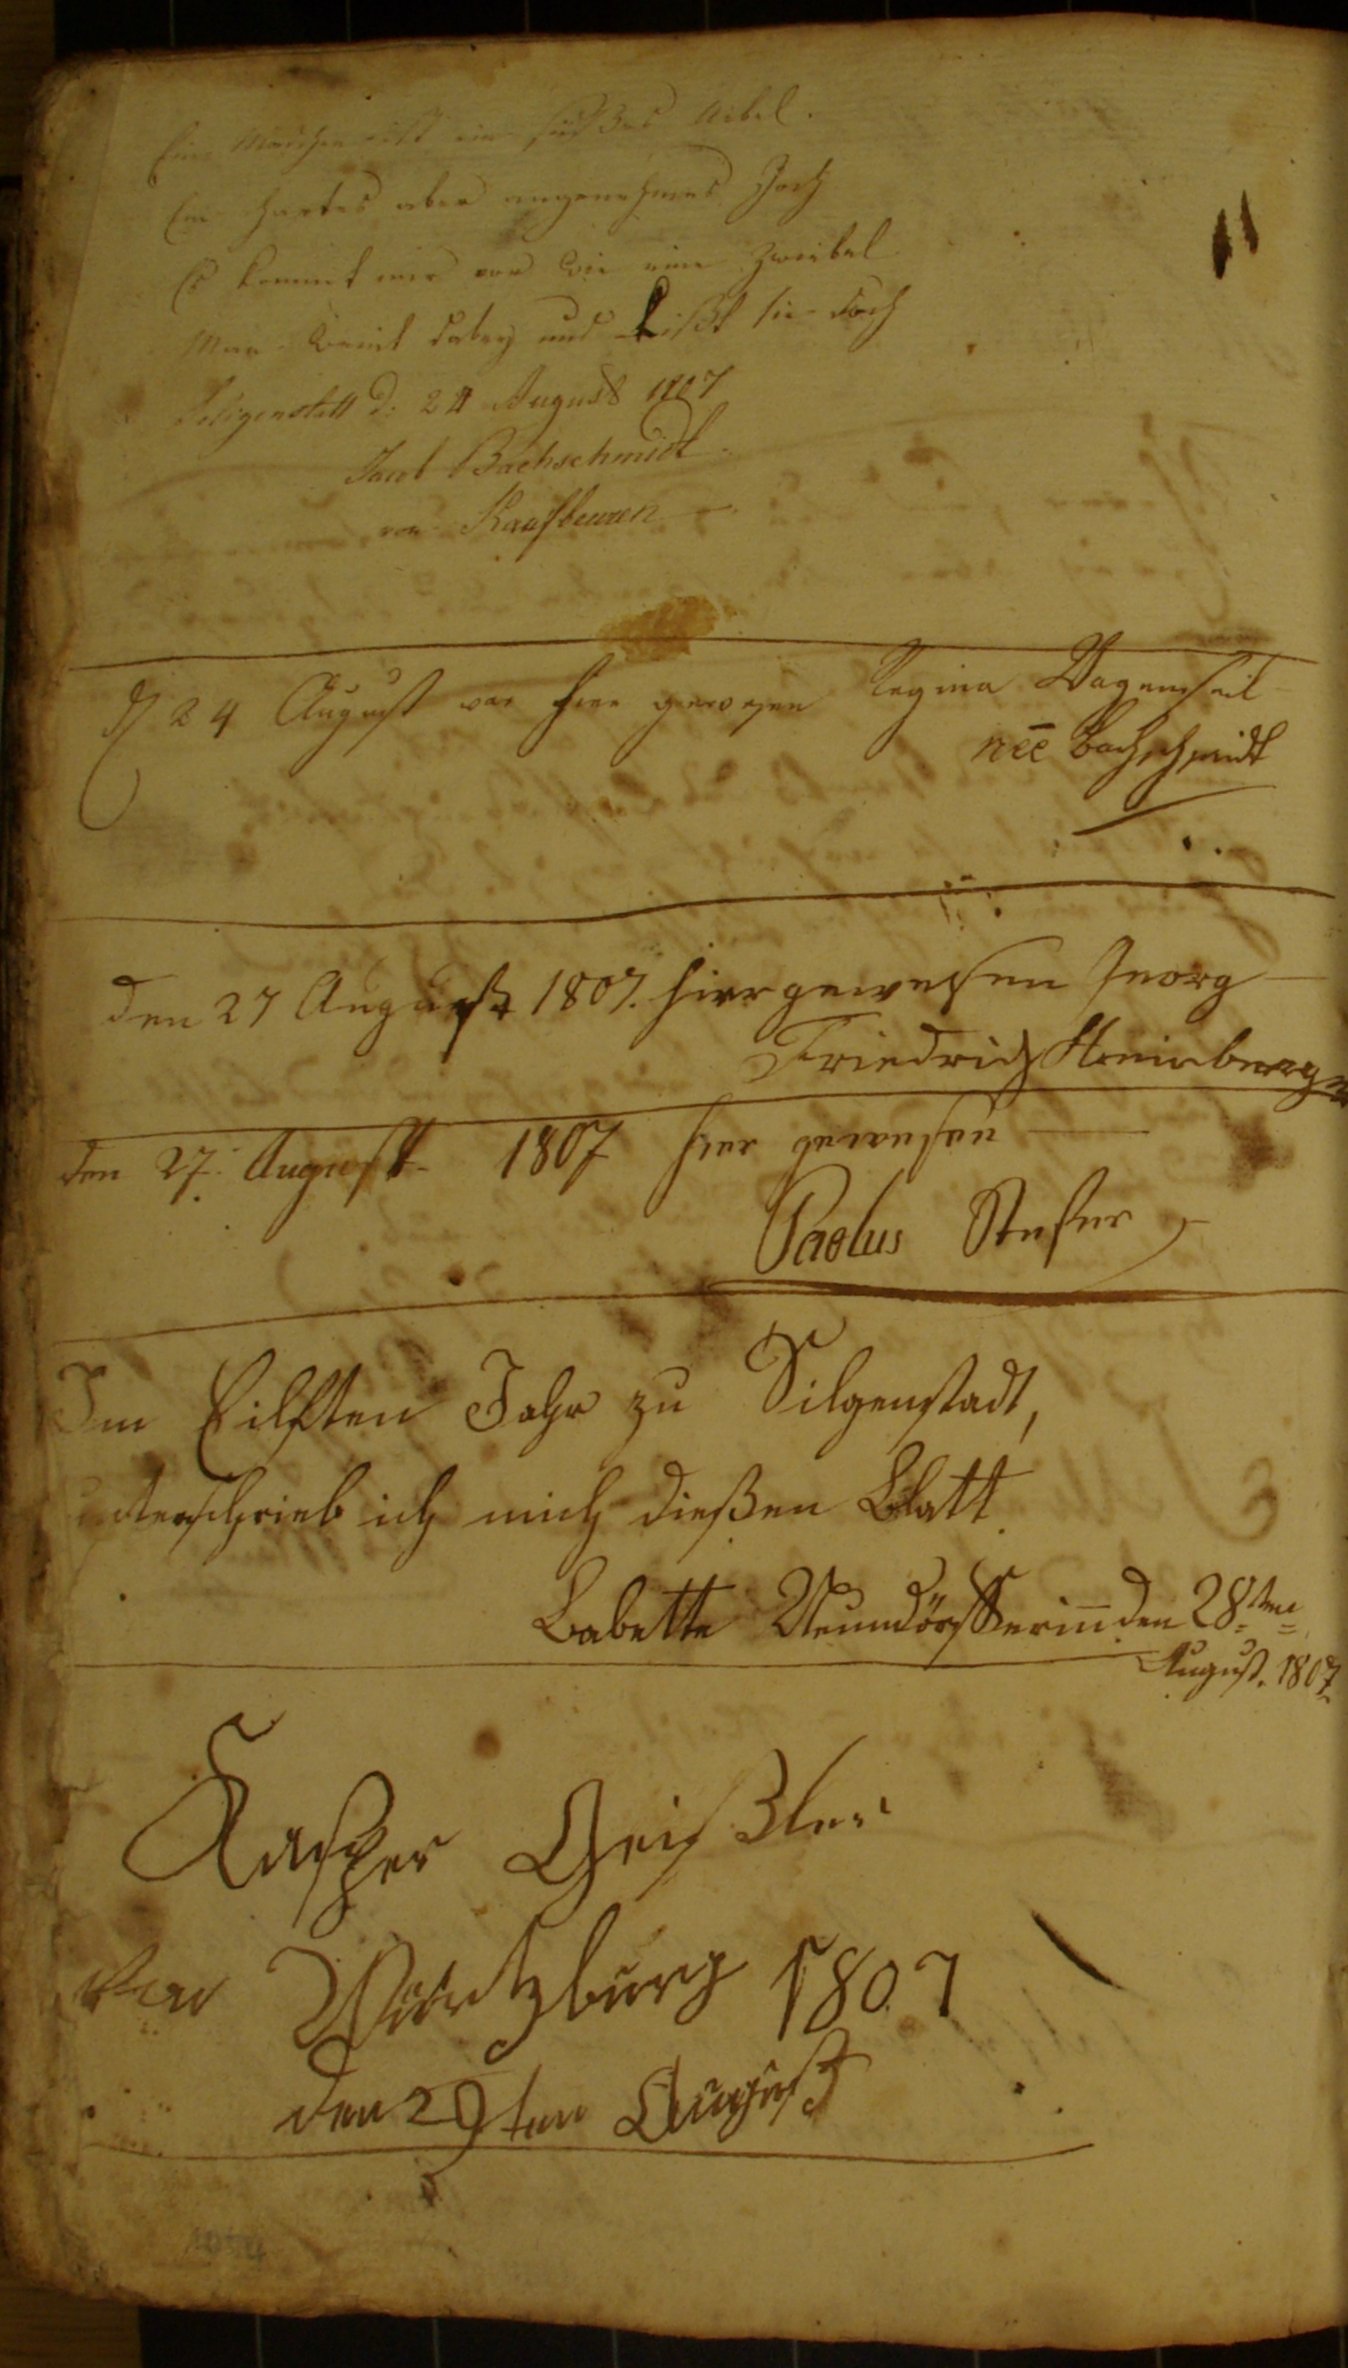 Ein Mädchen ist ein süßes Uebel.
Ein hartes aber angenehmes Joch
Es kommt mir vor wie eine Zwiebel
Man weint dabey und kißt sie doch
Seligenstatt d: 24 August 1807
Jacob Bachschmidt
von Kaufbeuren
d 24 August war hier gewesen Regina Wagenseil
née Bachschmidt
den 27 August 1807. hier gewesen Georg
Friedrich
den 27. August 1807 hier gewesen
Paolus
Im Eilften Jahr zu Silgenstadt,
unterschrieb ich mich dießen Blatt.
Babette Neundörfferin den 28ten
August. 1807
Kasper Geißler
von Würtzburg 1807
den 29ten August